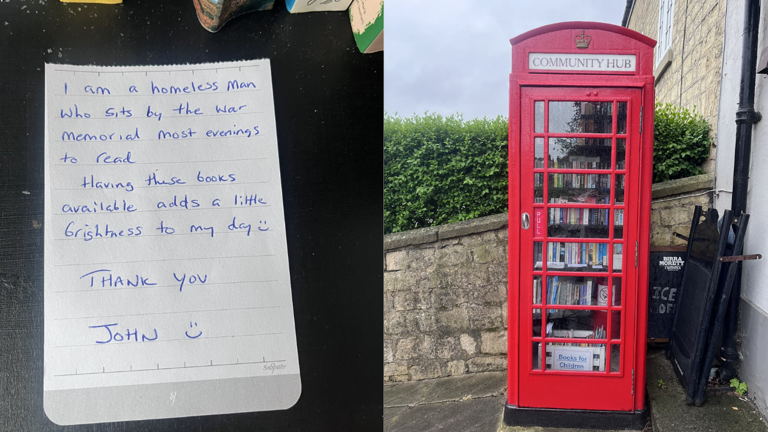 I am a homeless man
who sits by the war
memorial most evenings
to read
Having these books
available adds a little
brightness to my day
THANK YOU
JOHN
COMMUNITY HUB
PULL
BIRRA
MORETTI
ICE
Books for
Children